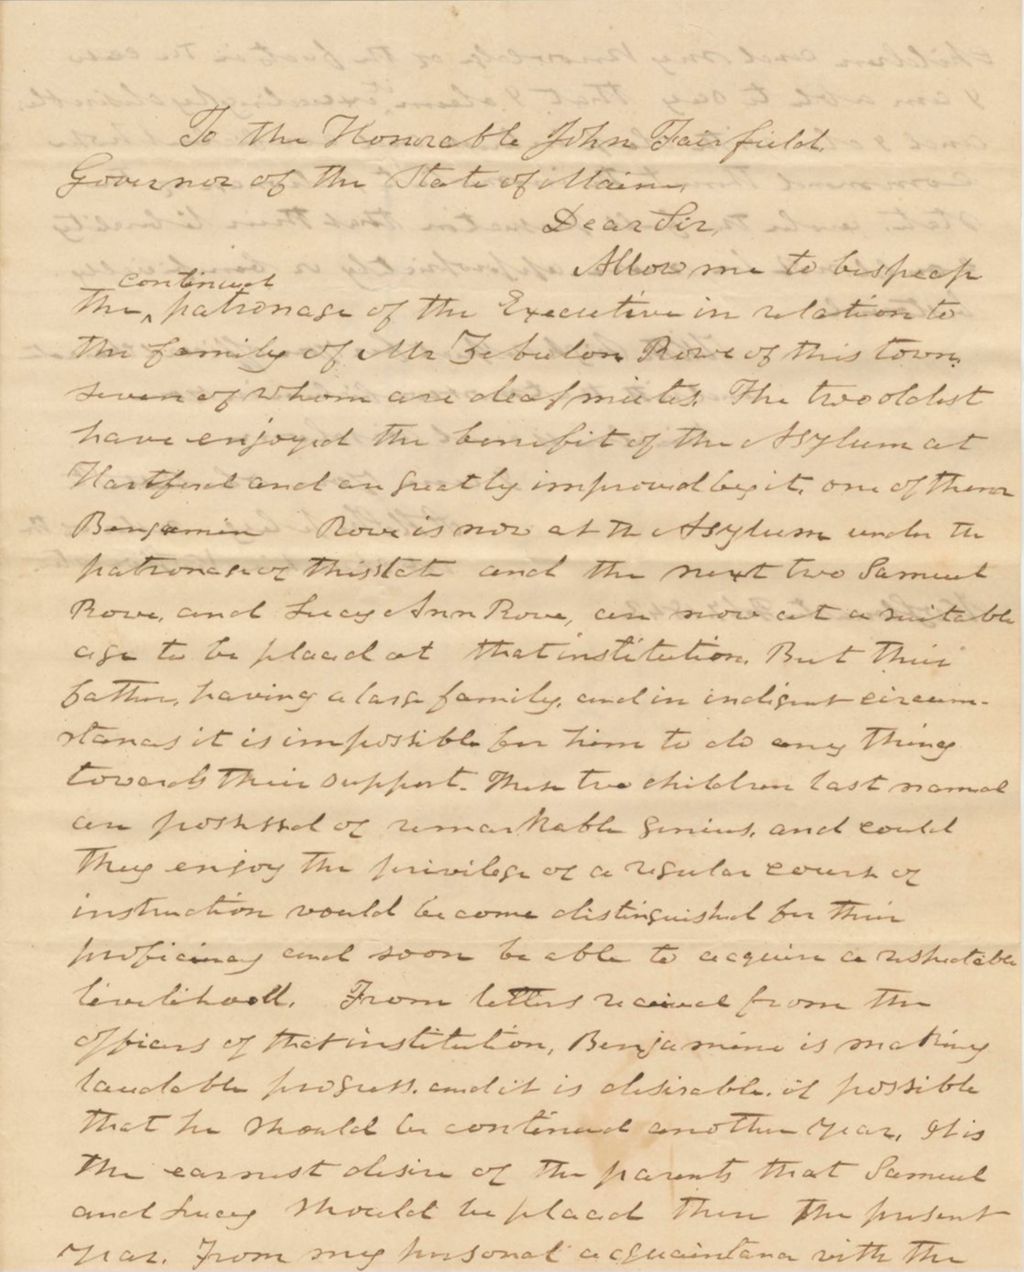 To the Honorable John Fairfield
Governor of the State of Maine,
Dear Sir,
Allow me to bespeak
continued
the ‸ patronage of the Executive in relation to
the family of Mr Zebulon Rowe of this town,
seven of whom are deaf mutes. The two oldest
have enjoyed the benefit of the Asylum at
Hartford and are greatly improved by it. one of them
Benjamin Rowe is now at the Asylum under the
patronage of this state and the next two Samuel
Rowe, and Lucy Ann Rowe, are now at a suitable
age to be placed at that institution. But their
father, having a large family, and in indigent circum-
stances it is impossible for him to do any thing
towards their support. These two children last named
are possessed of remarkable genius, and could
they enjoy the privilege of a regular course of
instruction would become distinguished for their
proficiency and soon be able to acquire a respectable
livelihood. From letters received from the
officers of that institution, Benjamine is making
laudable progress. and it is desirable, if possible
that he should be continued another year. It is
the earnest desire of the parents that Samuel
and Lucy should be placed there the present
year. From my personal acquaintance with the